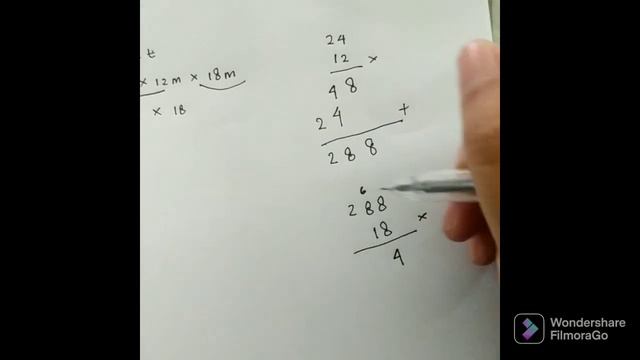 t
× 12m × 18m
× 18
24
12 ×
48
24 +
288
6
288
18 ×
4
Wondershare
FilmoraGo